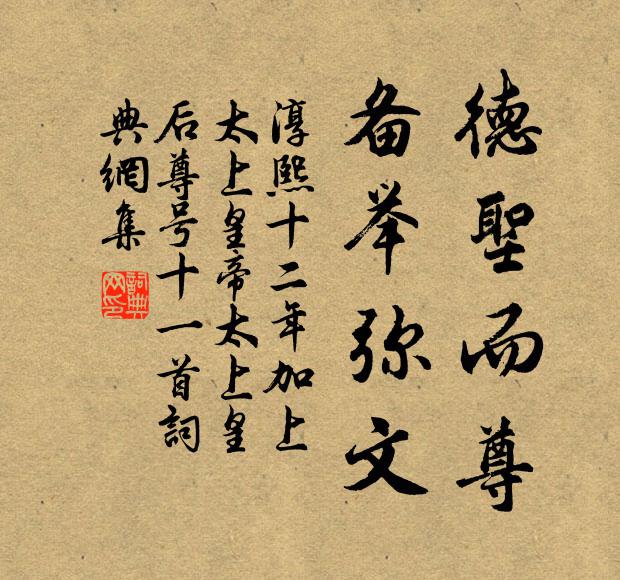 德聖而尊
备举弥文
淳熙十二年加上
太上皇帝太上皇
后尊号十一首詞
典網集
詞典
网印